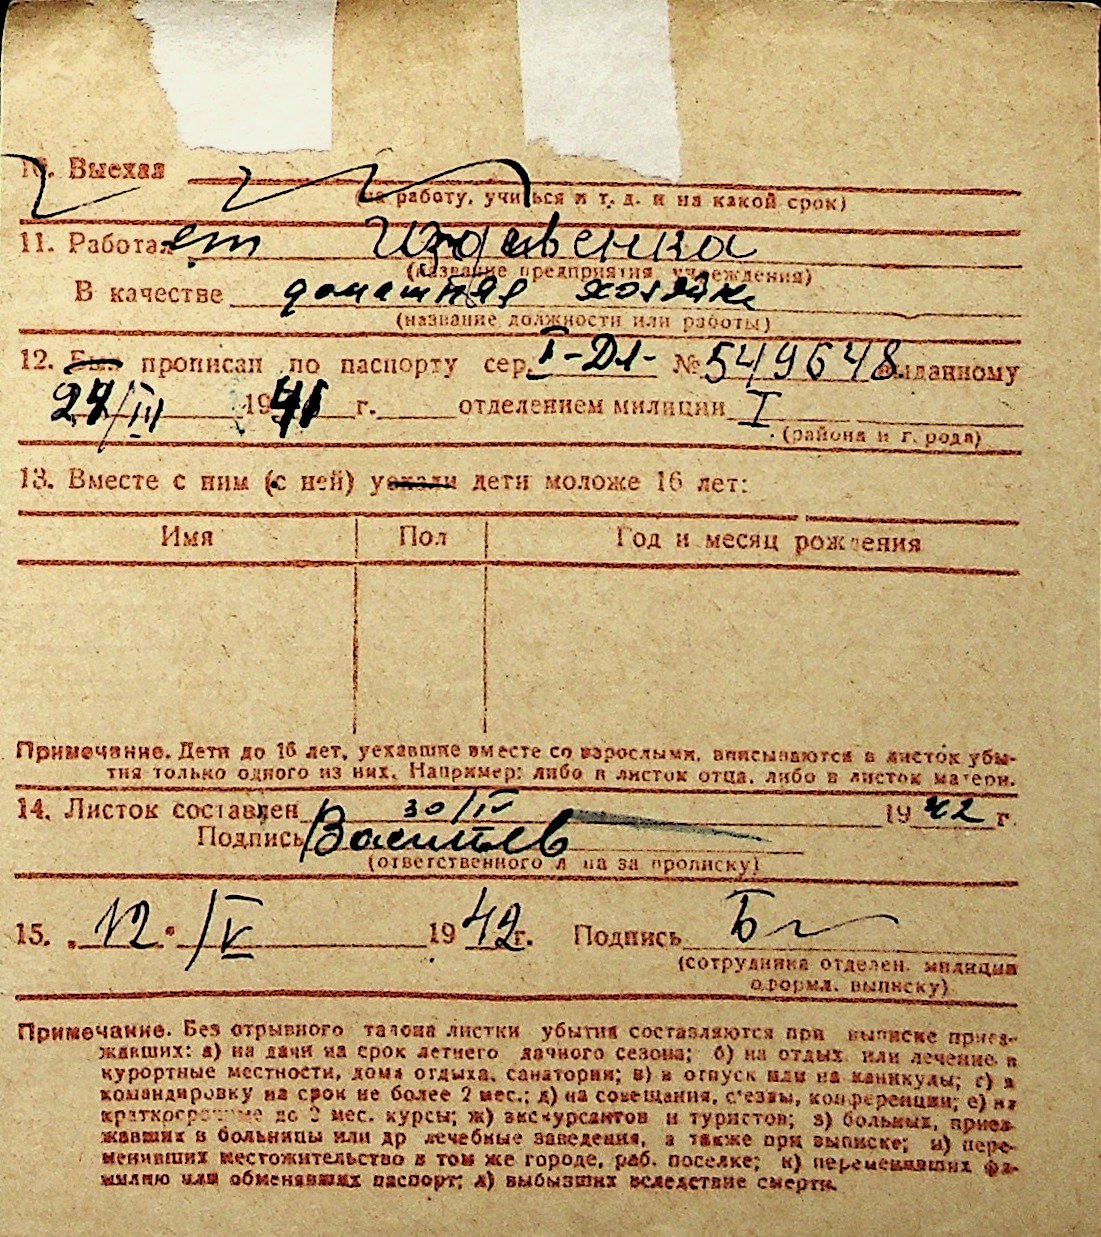 10. Выехал
(на работу, учиться и т. д. и на какой срок)
11. Работает иждивенка
(название предприятия, учреждения)
В качестве домашняя хозяйка
(название должности или работы)
12. Был прописан по паспорту сер. I-ДЛ- № 549648 выданному
27/III 1941 г. отделением милиции I
(района и г. рода)
13. Вместе с ним (с ней) уехали дети моложе 16 лет:
Имя Пол Год и месяц рождения
Примечание. Дети до 16 лет, уехавшие вместе со взрослыми, вписываются в листок убы-
тия только одного из них. Например: либо в листок отца, либо в листок матери.
14. Листок составлен 30/IV 1942 г.
Подпись Васильев
(ответственного лица за прописку)
15. 12. /V 1942 г. Подпись
(сотрудника отделен. милиции
оформл. выписку)
Примечание. Без отрывного талона листки убытия составляются при выписке приез-
жавших: а) на дачи на срок летнего дачного сезона; б) на отдых или лечение в
курортные местности, дома отдыха, санатории; в) в отпуск или на каникулы; г) в
командировку на срок не более 2 мес.; д) на совещания, с'езды, конференции; е) на
краткосрочные до 2 мес. курсы; ж) экскурсантов и туристов; з) больных, приез-
жавших в больницы или др лечебные заведения, а также при выписке; и) пере-
менивших местожительство в том же городе, раб. поселке; к) переменивших фа-
милию или обменявших паспорт; л) выбывших вследствие смерти.